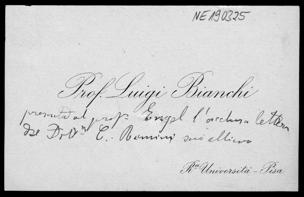 NE190325
Prof. Luigi Bianchi
presenta al prof. Engel l'acclusa lettera
del Dott. C. Bonnini suo allievo
R. Università - Pisa